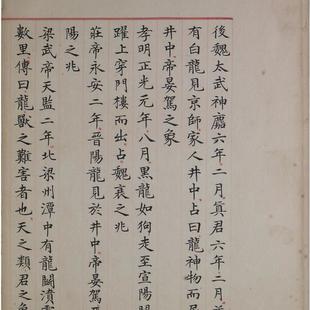 後魏太武神䴥六年二月真君六年二月並
有白龍見京師家人井中占曰龍神物而居
井中帝晏駕之象
孝明正光元年八月黑龍如狗走至宣陽門
躍上穿門樓而出占魏衰之兆
莊帝永安二年晉陽龍見於井中帝晏駕晉
陽之兆
梁武帝天監二年北梁州潭中有龍鬭濆霧
數里傳曰龍獸之難害者也天之類君之象